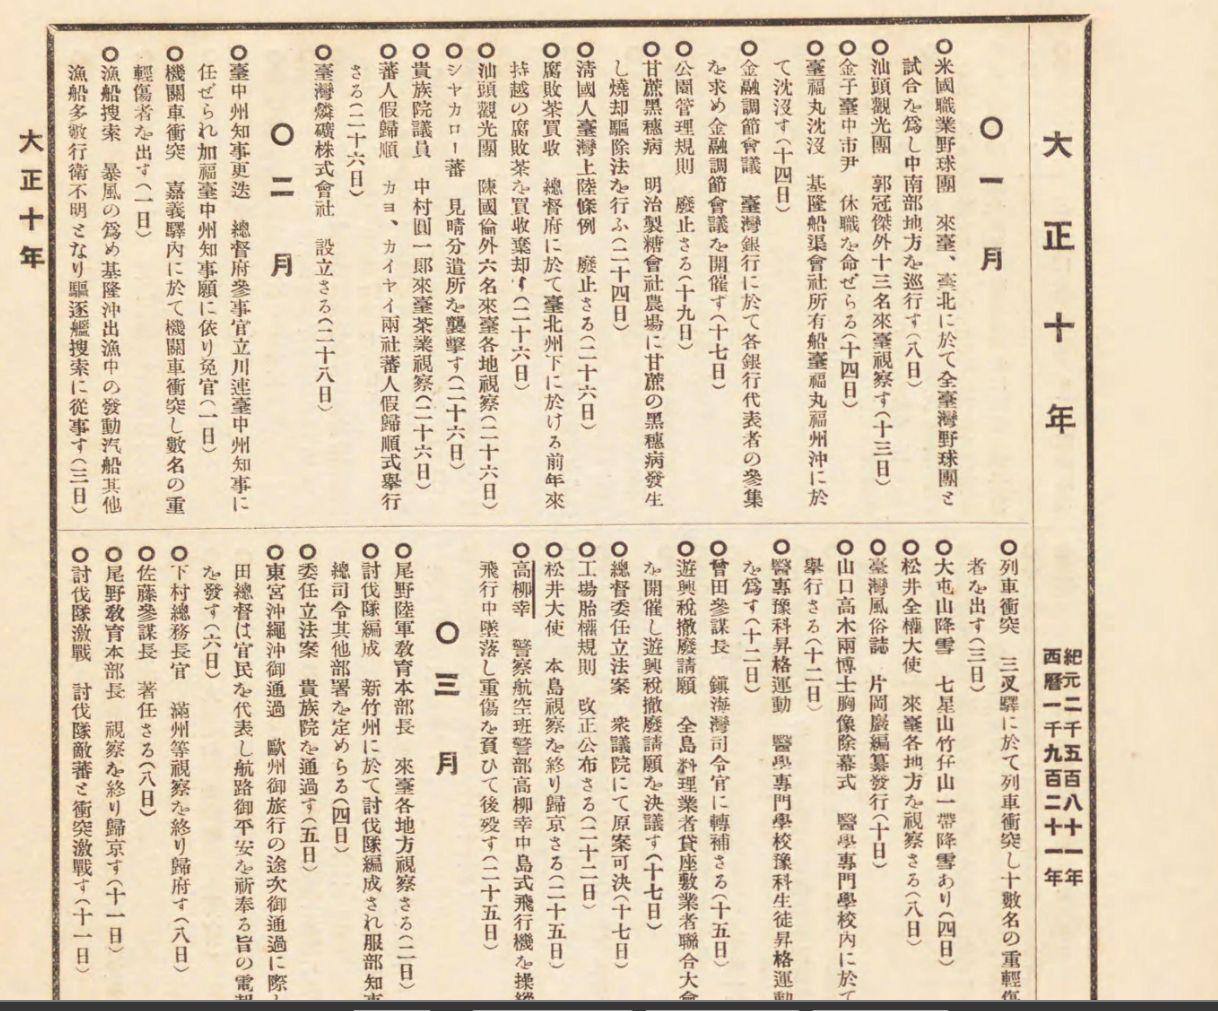 大正十年
紀元二千五百八十一年
西曆一千九百二十一年
〇一月
〇米國職業野球團　來臺、臺北に於て全臺灣野球團と
試合を爲し中南部地方を巡行す(八日)
〇汕頭觀光團　郭冠傑外十三名來臺視察す(十三日)
〇金子臺中市尹　休職を命ぜらる(十四日)
〇臺福丸沈沒　基隆船渠會社所有船臺福丸福州沖に於
て沈沒す(十四日)
〇金融調節會議　臺灣銀行に於て各銀行代表者の參集
を求め金融調節會議を開催す(十七日)
〇公園管理規則　廢止さる(十九日)
〇甘蔗黑穗病　明治製糖會社農場に甘蔗の黑穗病發生
し燒却驅除法を行ふ(二十四日)
〇淸國人臺灣上陸條例　廢止さる(二十六日)
〇腐敗茶買收　總督府に於て臺北州下に於ける前年來
持越の腐敗茶を買收棄却す(二十六日)
〇汕頭觀光團　陳國倫外六名來臺各地視察(二十六日)
〇シヤカロー蕃　見晴分遣所を襲擊す(二十六日)
〇貴族院議員　中村圓一郎來臺茶業視察(二十六日)
〇蕃人假歸順　カヨ、カイヤイ兩社蕃人假歸順式擧行
さる(二十六日)
〇臺灣燐礦株式會社　設立さる(二十八日)
〇二月
〇臺中州知事更迭　總督府參事官立川連臺中州知事に
任ぜられ加福臺中州知事願に依り免官(一日)
〇機關車衝突　嘉義驛內に於て機關車衝突し數名の重
輕傷者を出す(一日)
〇漁船搜索　暴風の爲め基隆沖出漁中の發動汽船其他
漁船多數行衛不明となり驅逐艦搜索に從事す(三日)
〇列車衝突　三叉驛に於て列車衝突し十數名の重輕傷
者を出す(三日)
〇大屯山降雪　七星山竹仔山一帶降雪あり(四日)
〇松井全權大使　來臺各地方を視察さる(八日)
〇臺灣風俗誌　片岡巖編纂發行(十日)
〇山口高木兩博士胸像除幕式　醫學專門學校內に於て
擧行さる(十二日)
〇醫專豫科昇格運動　醫學專門學校豫科生徒昇格運動
を爲す(十二日)
〇曾田參謀長　鎭海灣司令官に轉補さる(十五日)
〇遊興稅撤廢請願　全島料理業者貸座敷業者聯合大會
を開催し遊興稅撤廢請願を決議す(十七日)
〇總督委任立法案　衆議院にて原案可決(十七日)
〇工場胎權規則　改正公布さる(二十二日)
〇松井大使　本島視察を終り歸京さる(二十五日)
〇高柳幸　警察航空班警部高柳幸中島式飛行機を操縱
飛行中墜落し重傷を負ひて後歿す(二十五日)
〇三月
〇尾野陸軍敎育本部長　來臺各地方視察さる(二日)
〇討伐隊編成　新竹州に於て討伐隊編成され服部知事
總司令其他部署を定めらる(四日)
〇委任立法案　貴族院を通過す(五日)
〇東宮沖繩沖御通過　歐州御旅行の途次御通過に際し
田總督は官民を代表し航路御平安を祈奉る旨の電報
を發す(六日)
〇下村總務長官　滿州等視察を終り歸府す(八日)
〇佐藤參謀長　著任さる(八日)
〇尾野敎育本部長　視察を終り歸京す(十一日)
〇討伐隊激戰　討伐隊敵蕃と衝突激戰す(十一日)
大正十年